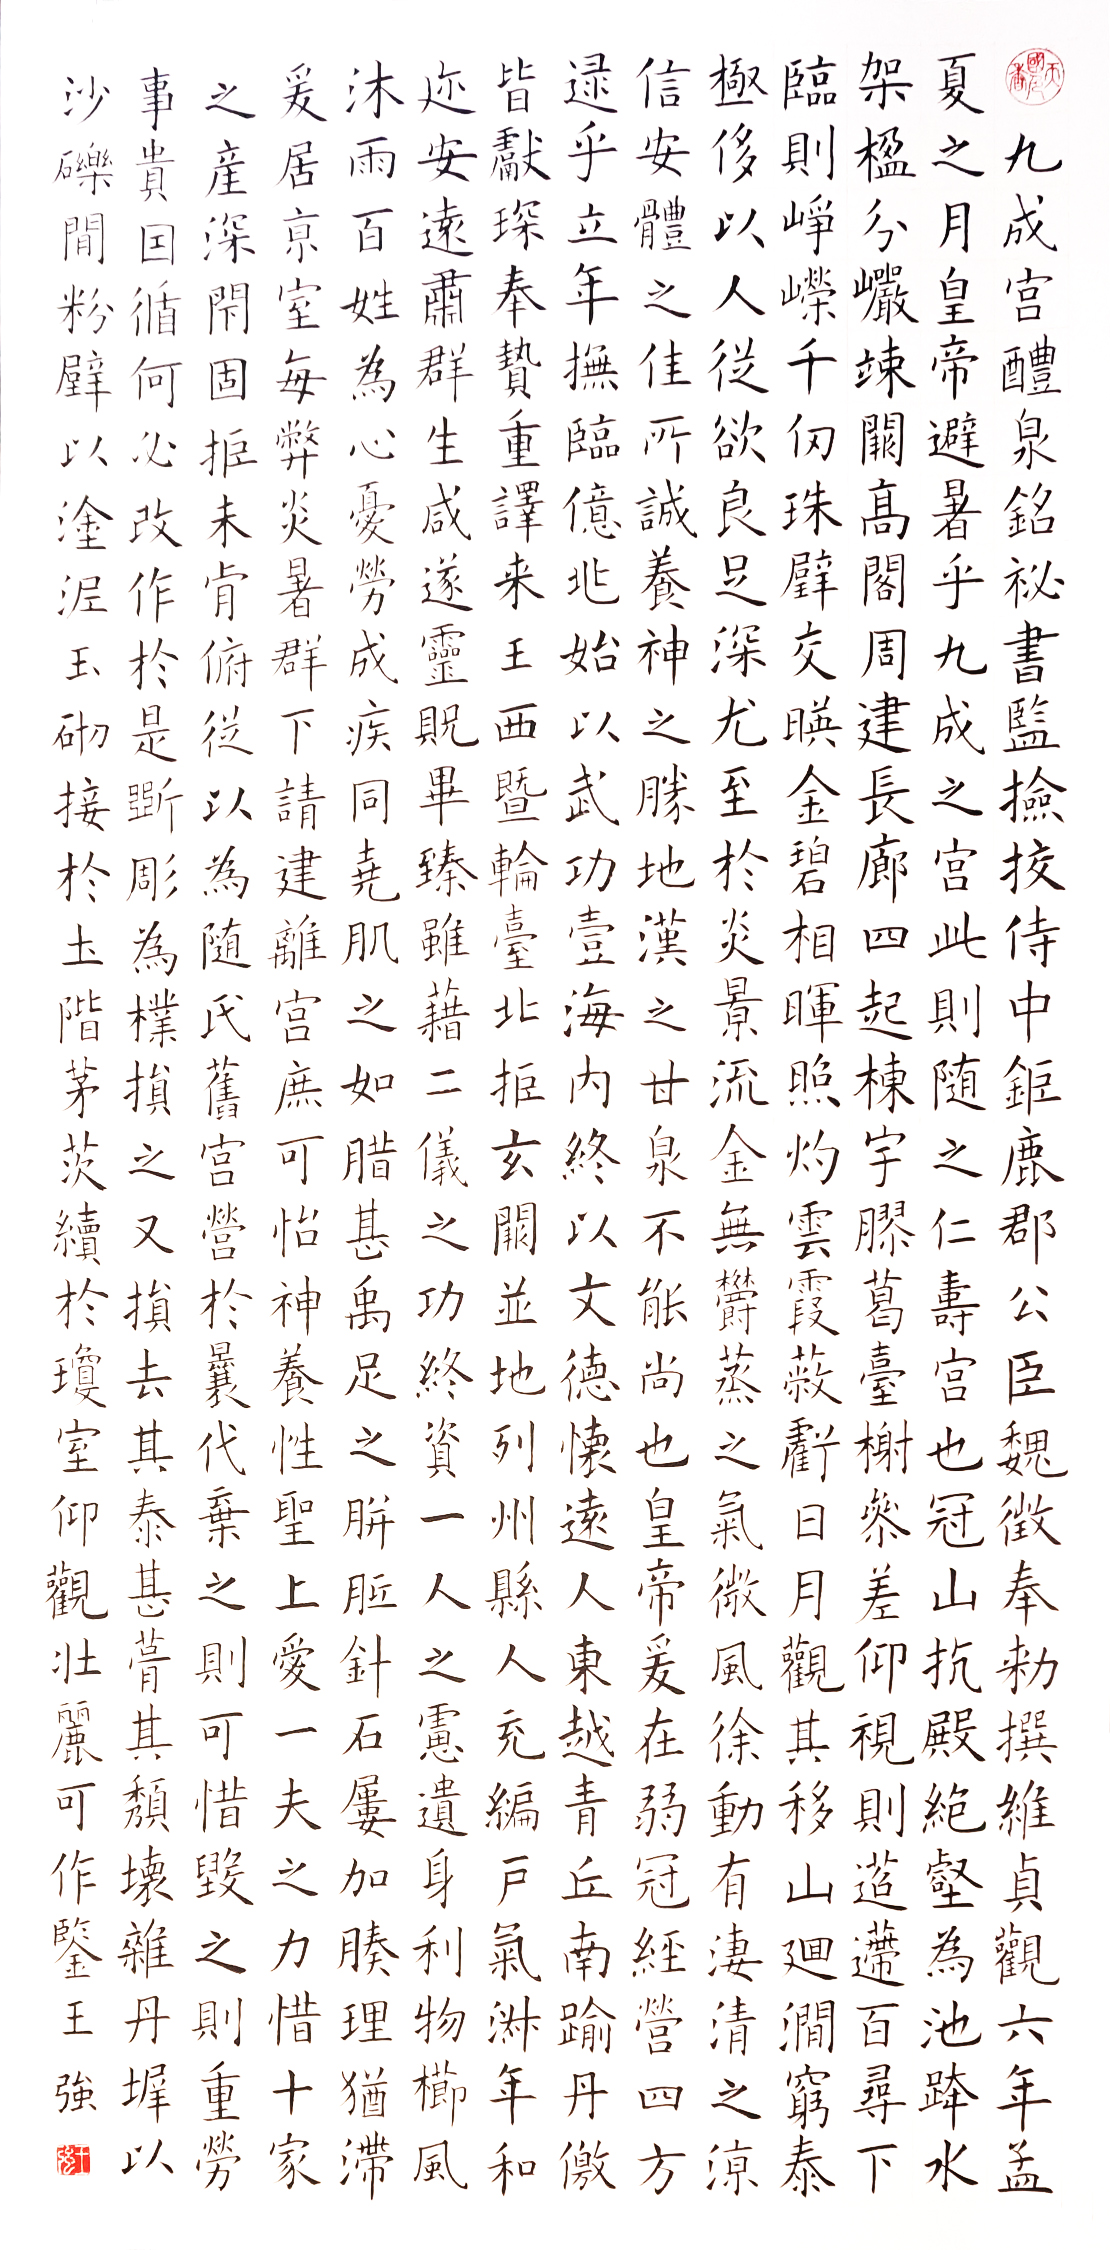 九成宮醴泉銘祕書監撿挍侍中鉅鹿郡公臣魏徵奉勑撰維貞觀六年孟
夏之月皇帝避暑乎九成之宮此則随之仁壽宮也冠山抗殿絶壑為池跨水
架楹分巖竦闕高閣周建長廊四起棟宇膠葛臺榭參差仰視則迢遰百尋下
臨則崢嶸千仞珠壁交暎金碧相暉照灼雲霞蔽虧日月觀其移山廻澗窮泰
極侈以人從欲良足深尤至於炎景流金無欝蒸之氣微風徐動有淒清之涼
信安體之佳所誠養神之勝地漢之甘泉不能尚也皇帝爰在弱冠經營四方
逯乎立年撫臨億兆始以武功壹海内終以文德懷遠人東越青丘南踰丹儌
皆獻琛奉贄重譯来王西曁輪臺北拒玄闕並地列州縣人充編戸氣淋年和
迩安遠肅群生咸遂靈貺畢臻雖藉二儀之功終資一人之慮遺身利物櫛風
沐雨百姓為心憂勞成疾同堯肌之如腊甚禹足之胼胝針石屢加腠理猶滯
爰居京室每弊炎暑群下請建離宮庶可怡神養性聖上愛一夫之力惜十家
之産深閇固拒未肯俯從以為随氏舊宮營於曩代棄之則可惜毀之則重勞
事貴因循何必改作於是斲彫為樸損之又損去其泰甚葺其頹壞雜丹墀以
沙礫間粉壁以塗泥玉砌接於土階茅茨續於瓊室仰觀壯麗可作鑒王強